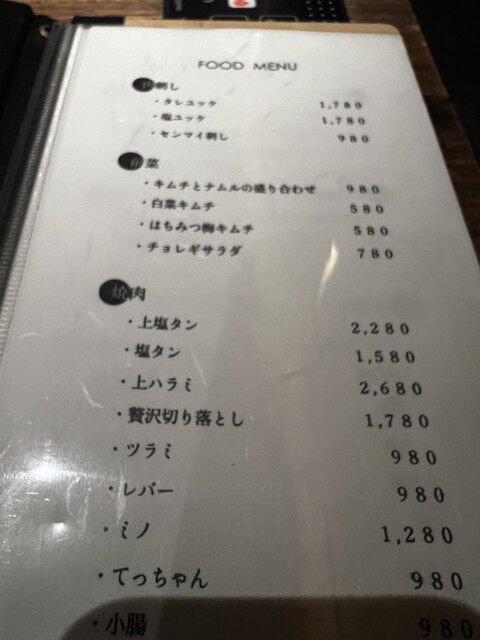 FOOD MENU
肉刺し
・タレユッケ 1,780
・塩ユッケ 1,780
・センマイ刺し 980
前菜
・キムチとナムルの盛り合わせ 980
・白菜キムチ 580
・はちみつ梅キムチ 580
・チョレギサラダ 780
焼肉
・上塩タン 2,280
・塩タン 1,580
・上ハラミ 2,680
・贅沢切り落とし 1,780
・ツラミ 980
・レバー 980
・ミノ 1,280
・てっちゃん 980
・小腸 980